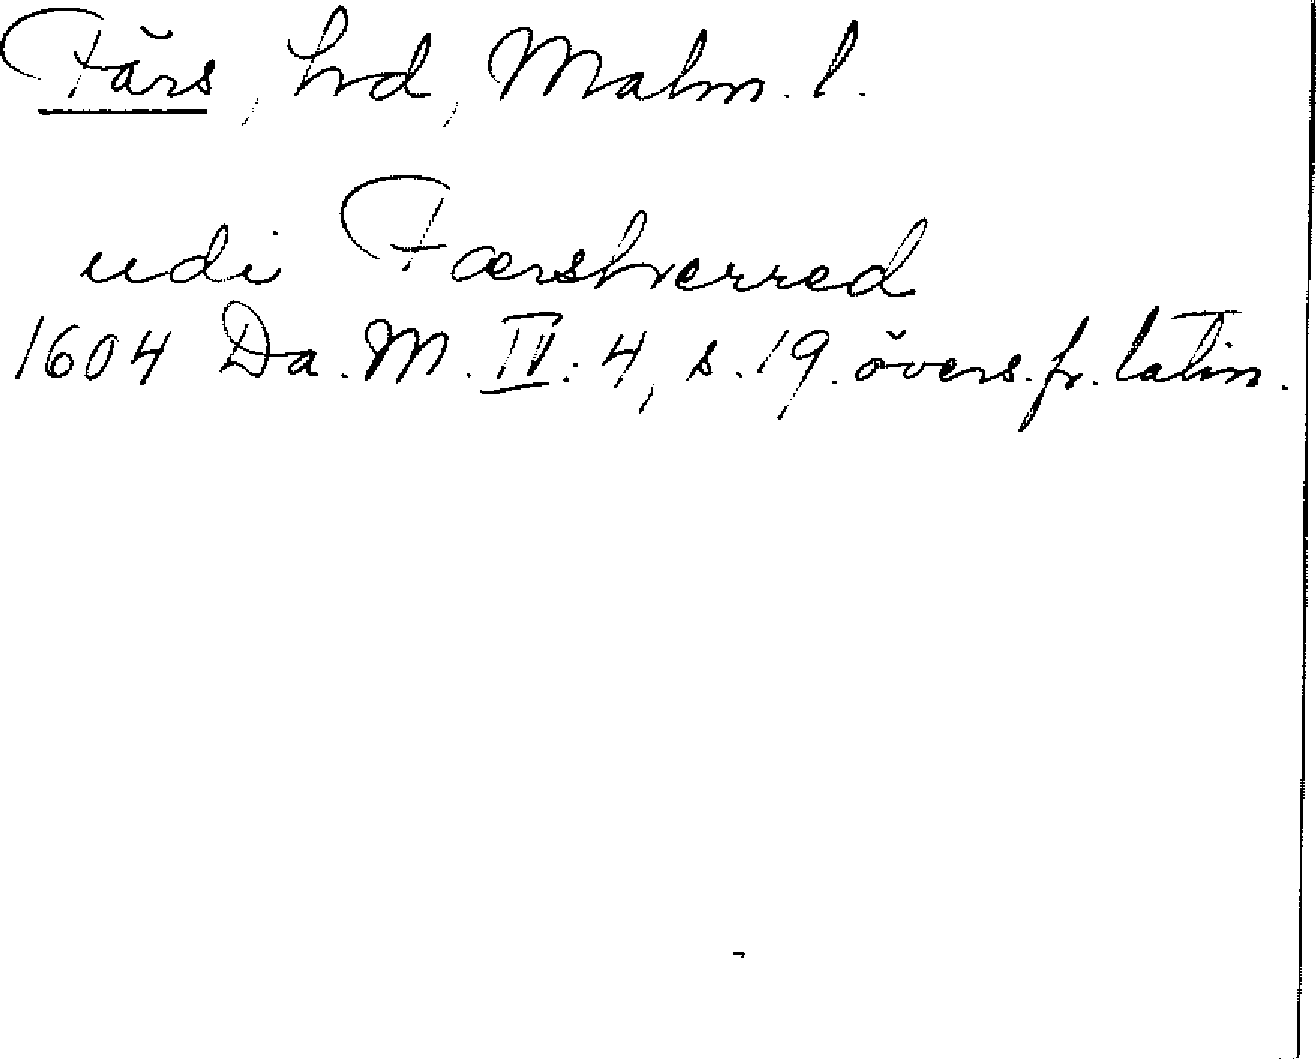 Färs, hd, Malm. l.
udi Færsherred
1604 Da. M. IV: 4, s. 19. övers. fr. latin.